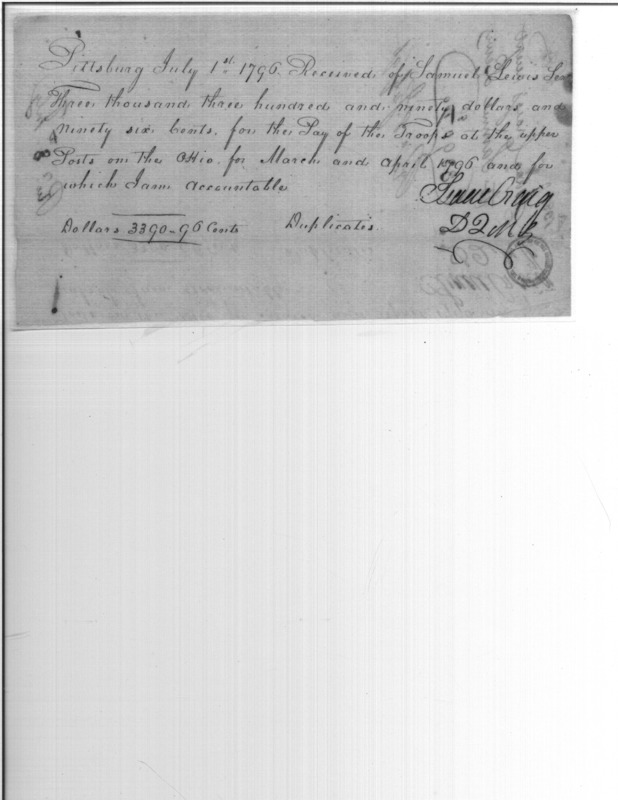 Pittsburg July 1st 1796 Received of Samuel Lewis Senr
Three thousand three hundred and ninety dollars and
ninety six Cents, for the Pay of the Troops at the upper
Posts on the Ohio for March and April 1796 and for
which I am accountable
Isaac Craig
Dollars 3390-96 Cents Duplicates
D Q M G